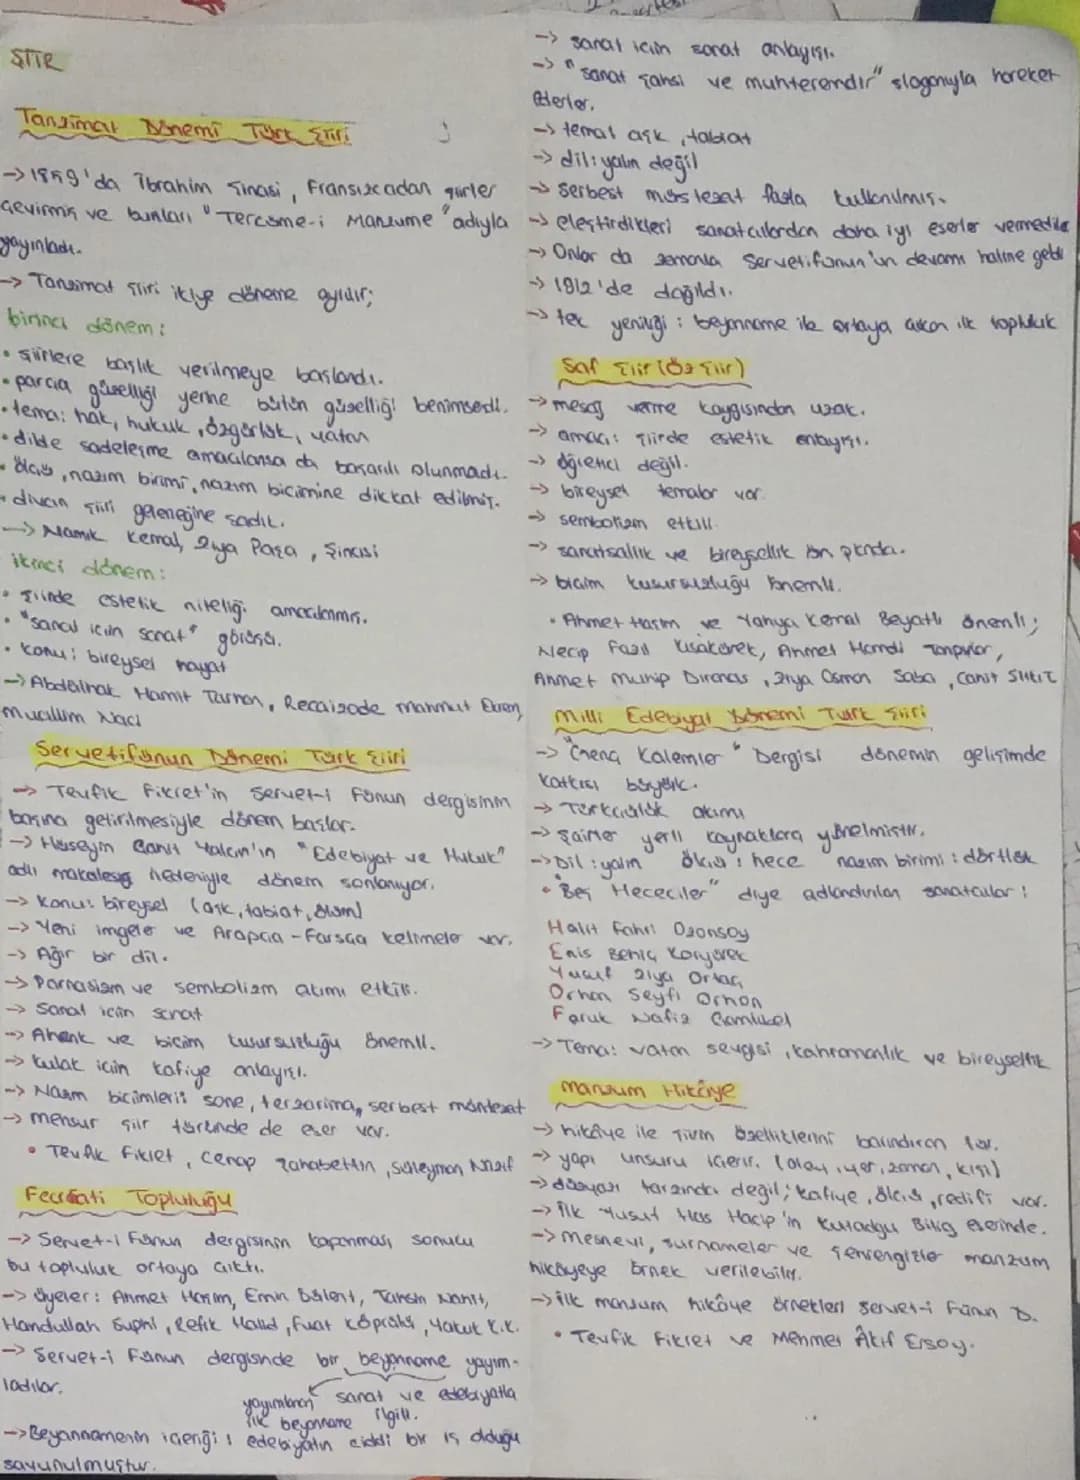 ŞİİR
Tanzimat Dönemi Türk Şiiri
-> 1859'da İbrahim Şinasi, Fransızcadan şiirler
çevirmiş ve bunları "Tercüme-i Manzume" adıyla
yayınladı.
-> Tanzimat şiiri ikiye döneme ayrılır;
birinci dönem:
• şiirlere başlık verilmeye başlandı.
• parça güzelliği yerine bütün güzelliği benimsendi.
• tema: hak, hukuk, özgürlük, vatan
• dilde sadeleşme amaçlansa da başarılı olunmadı.
• ölçü, nazım birimi, nazım biçimine dikkat edilmiş.
• divan şiiri geleneğine sadık.
-> Namık Kemal, Ziya Paşa, Şinasi
ikinci dönem:
• şiirde estetik niteliği amaçlanmış.
• "sanat için sanat" görüşü.
• konu: bireysel hayat
-> Abdülhak Hamit Tarhan, Recaizade Mahmut Ekrem,
Muallim Naci
Servetifünun Dönemi Türk Şiiri
-> Tevfik Fikret'in Servet-i Fünun dergisinin
başına getirilmesiyle dönem başlar.
-> Hüseyin Cahit Yalçın'ın "Edebiyat ve Hukuk"
adlı makalesi nedeniyle dönem sonlanıyor.
-> Konu: bireysel (aşk, tabiat, ölüm)
-> Yeni imgeler ve Arapça-Farsça kelimeler var.
-> Ağır bir dil.
-> Parnasizm ve sembolizm akımı etkili.
-> Sanat için sanat
-> Ahenk ve biçim kusursuzluğu önemli.
-> kulak için kafiye anlayışı.
-> Nazım biçimleri: sone, terzarima, serbest müstezat
-> mensur şiir türünde de eser var.
• Tevfik Fikret, Cenap Şahabettin, Süleyman Nazif
Fecriati Topluluğu
-> Servet-i Fünun dergisinin kapanması sonucu
bu topluluk ortaya çıktı.
-> üyeler: Ahmet Haşim, Emin Bülent, Tahsin Nahit,
Hamdullah Suphi, Refik Halid, Fuat Köprülü, Yakup K.K.
-> Servet-i Fünun dergisinde bir beyanname yayım-
ladılar.
yayımlanan sanat ve edebiyatla
ilk beyanname ilgili.
-> Beyannamenin içeriği: edebiyatın ciddi bir iş olduğu
savunulmuştur.
-> sanat için sanat anlayışı.
-> "sanat şahsi ve muhteremdir" sloganıyla hareket
ederler.
-> tema: aşk, tabiat
-> dil: yalın değil
-> serbest müstezat fazla kullanılmış.
-> eleştirdikleri sanatçılardan daha iyi eserler vermediler
-> Onlar da zamanla Servetifünun'un devamı haline geldi
-> 1912'de dağıldı.
-> tek yeniliği: beyanname ile ortaya çıkan ilk topluluk
Saf Şiir (Öz Şiir)
-> mesaj verme kaygısından uzak.
-> amacı: şiirde estetik anlayışı.
-> öğretici değil.
-> bireysel temalar var.
-> sembolizm etkili
-> sanatsallık ve bireysellik ön planda.
-> biçim kusursuzluğu önemli.
• Ahmet Haşim ve Yahya Kemal Beyatlı önemli;
Necip Fazıl Kısakürek, Ahmet Hamdi Tanpınar,
Ahmet Muhip Dıranas, Ziya Osman Saba, Cahit Sıtkı T.
Milli Edebiyat Dönemi Türk Şiiri
-> "Genç Kalemler" Dergisi dönemin gelişimde
katkısı büyük.
-> Türkçülük akımı
-> şairler yerli kaynaklara yönelmiştir.
-> Dil: yalın ölçü: hece nazım birimi: dörtlük
• "Beş Hececiler" diye adlandırılan sanatçılar:
Halit Fahri Ozansoy
Enis Behiç Koryürek
Yusuf Ziya Ortaç
Orhan Seyfi Orhon
Faruk Nafiz Çamlıbel
-> Tema: vatan sevgisi, kahramanlık ve bireysellik
Manzum Hikâye
-> hikâye ile şiirin özelliklerini barındıran tür.
-> yapı unsuru içerir. (olay, yer, zaman, kişi)
-> düzyazı tarzında değil; kafiye, ölçü, redifi var.
-> ilk Yusuf Has Hacip'in Kutadgu Bilig eserinde.
-> mesnevi, surnameler ve şehrengizler manzum
hikâyeye örnek verilebilir.
-> ilk manzum hikâye örnekleri Servet-i Fünun D.
• Tevfik Fikret ve Mehmet Âkif Ersoy.